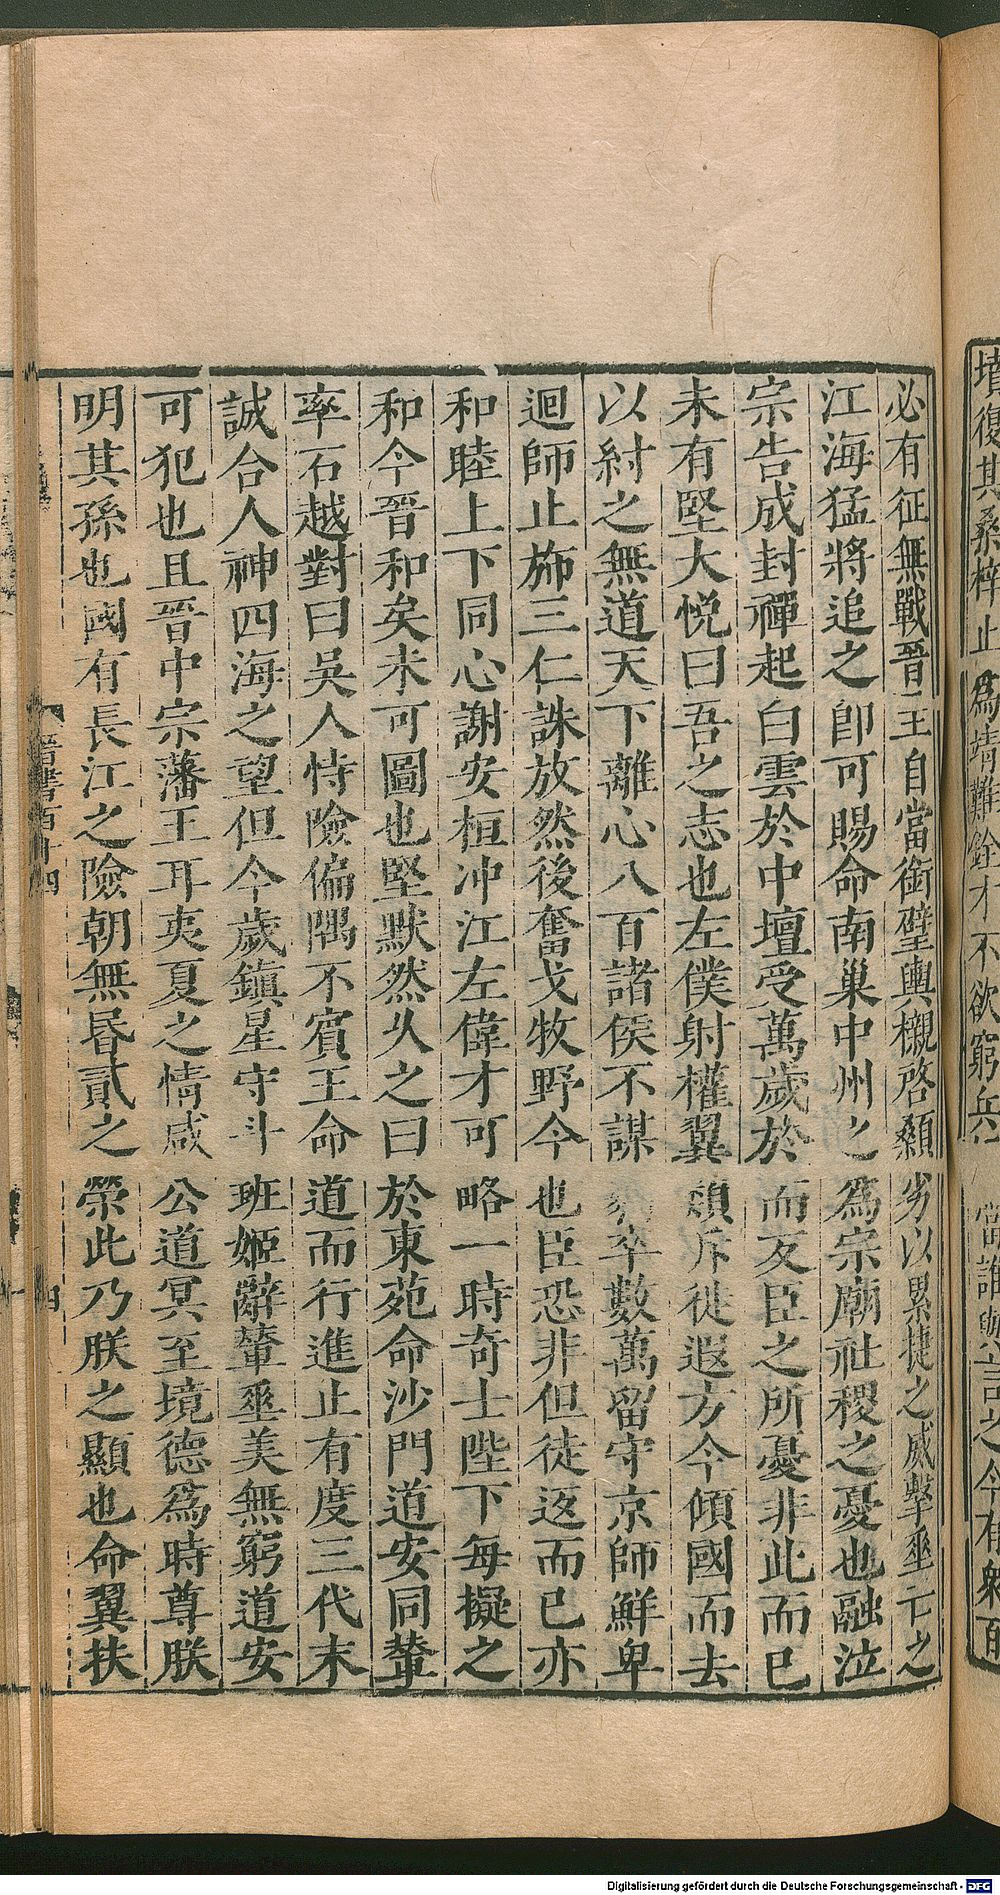 墳復其桑梓止爲靖難銓才不欲窮兵
必有征無戰晉主自當銜璧輿櫬啓顙劣以累捷之威擊垂亡之
江海猛將追之即可賜命南巢中州之爲宗廟社稷之憂也融泣
宗告成封禪起白雲於中壇受萬歲於而友臣之所憂非此而已
未有堅大悅曰吾之志也左僕射權翼類斥徙遐方今傾國而去
以紂之無道天下離心八百諸侯不謀卒數萬留守京師鮮卑
迴師止斾三仁誅放然後奮戈牧野今也臣恐非但徒返而已亦
和睦上下同心謝安桓沖江左偉才可略一時奇士陛下每擬之
和今晉和矣未可圖也堅默然久之曰於東苑命沙門道安同輦
率石越對曰吳人恃險偏隅不賓王命道而行進止有度三代末
誠合人神四海之望但今歲鎮星守斗班姬辭輦垂美無窮道安
可犯也且晉中宗藩王耳夷夏之情咸公道冥至境德爲時尊朕
明其孫也國有長江之險朝無昬貳之榮此乃朕之顯也命翼扶
晉書百十四
四
Digitalisierung gefördert durch die Deutsche Forschungsgemeinschaft - DFG